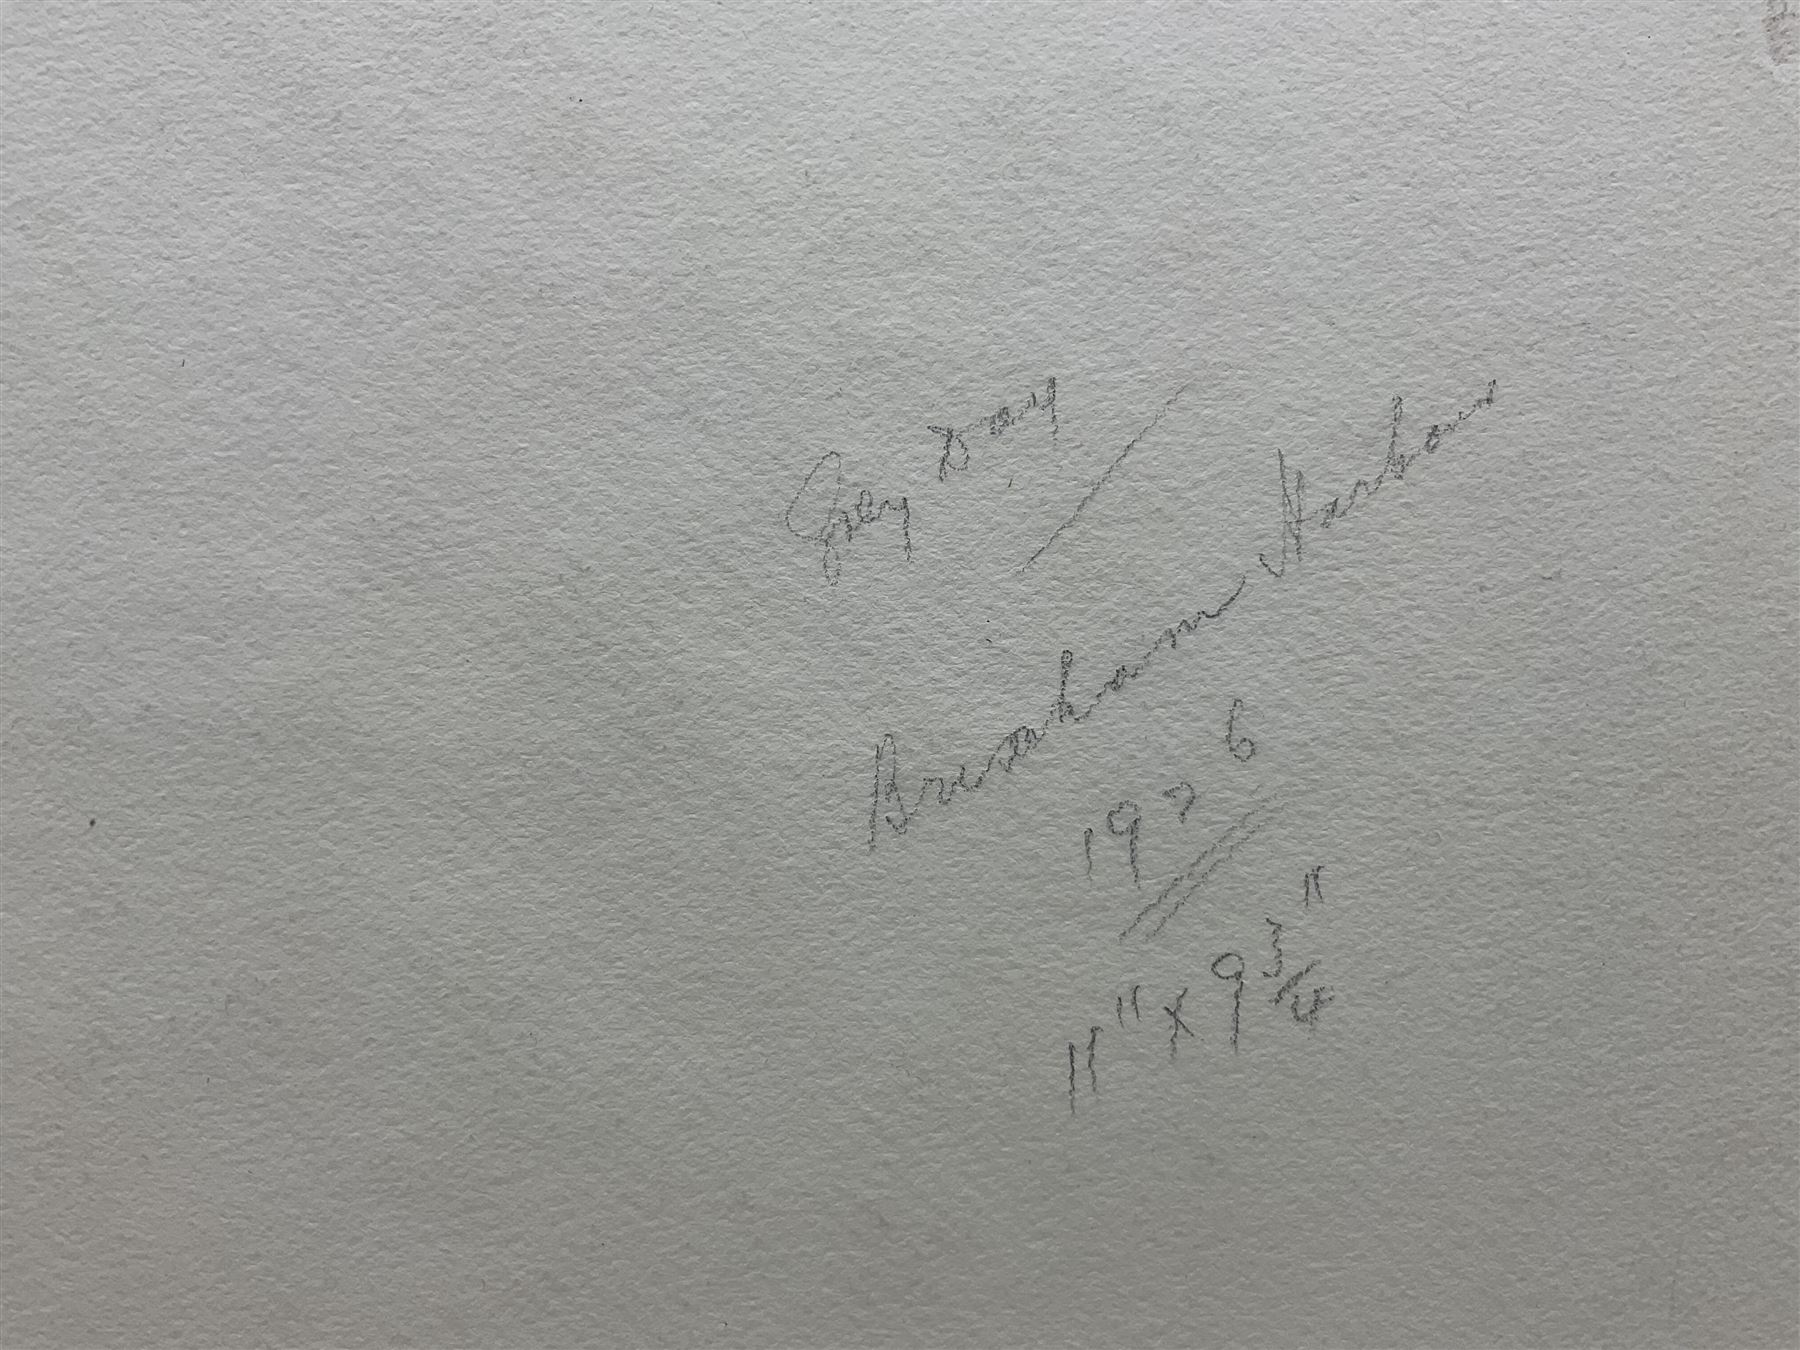 Grey Day
Brixham Harbour
1976
11" x 9 3/4"